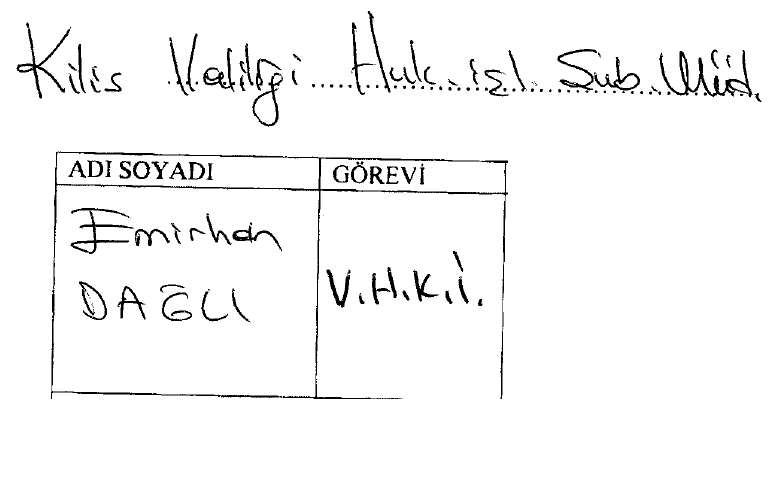 Kilis Valiliği Huk. işl. Şub. Müd.
ADI SOYADI GÖREVİ
Emirhan
DAĞLI
V.H.K.İ.